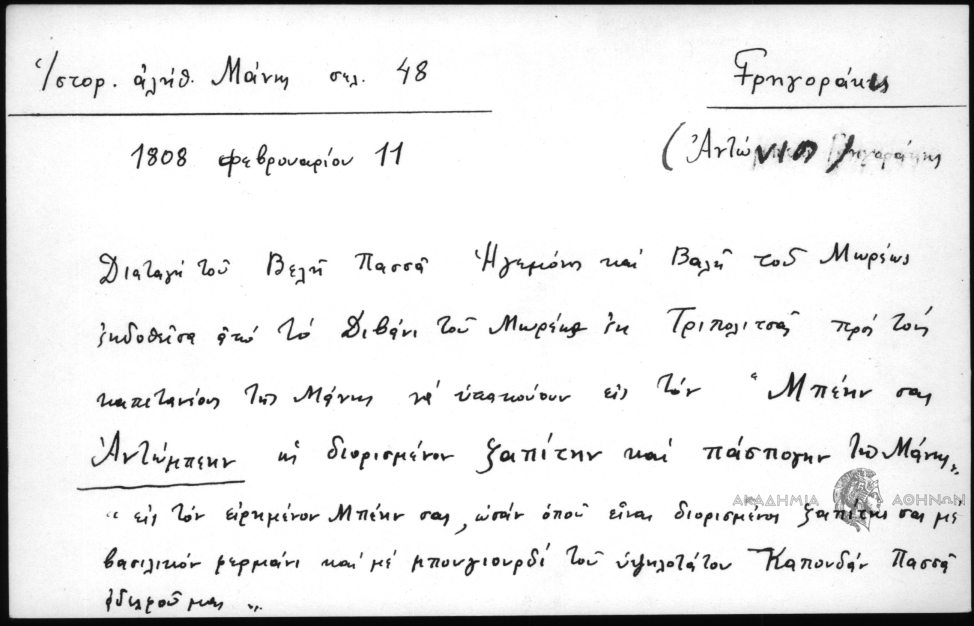 Ἱστορ. ἀλήθ. Μάνης σελ. 48
Γρηγοράκης
1808 Φεβρουαρίου 11
(Ἀντώνιος) Γρηγοράκης
Διαταγή τοῦ Βελῆ Πασσᾶ Ἡγεμόνος καί Βαλῆ τοῦ Μωρέως
ἐκδοθεῖσα ἀπό τό Διβάνι τοῦ Μωρέως ἐκ Τριπολιτσᾶς πρός τούς
καπετανίους τῆς Μάνης νά ὑπακούουν εἰς τόν "Μπέην σας
Ἀντώμπεην ὡς διορισμένον ζαπίτην καί πάσπογην τῆς Μάνης"
ΑΚΑΔΗΜΙΑ ΑΘΗΝΩΝ
"εἰς τόν εἰρημένον Μπέην σας, ὡσάν ὁποῦ εἶναι διορισμένος ζαπίτης σας μέ
βασιλικόν φερμάνι καί μέ μπουγιουρδί τοῦ ὑψηλοτάτου Καπουδάν Πασσᾶ
ἀδελφοῦ μας"